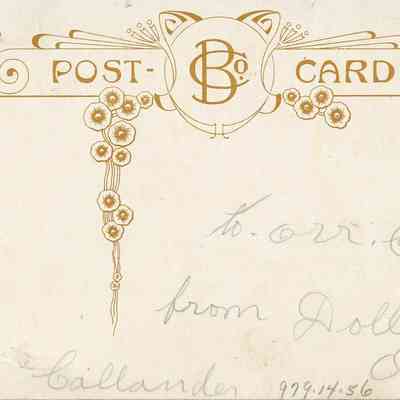 POST- BCo. CARD
to. orr.
from Doll
Callander 979.14.56